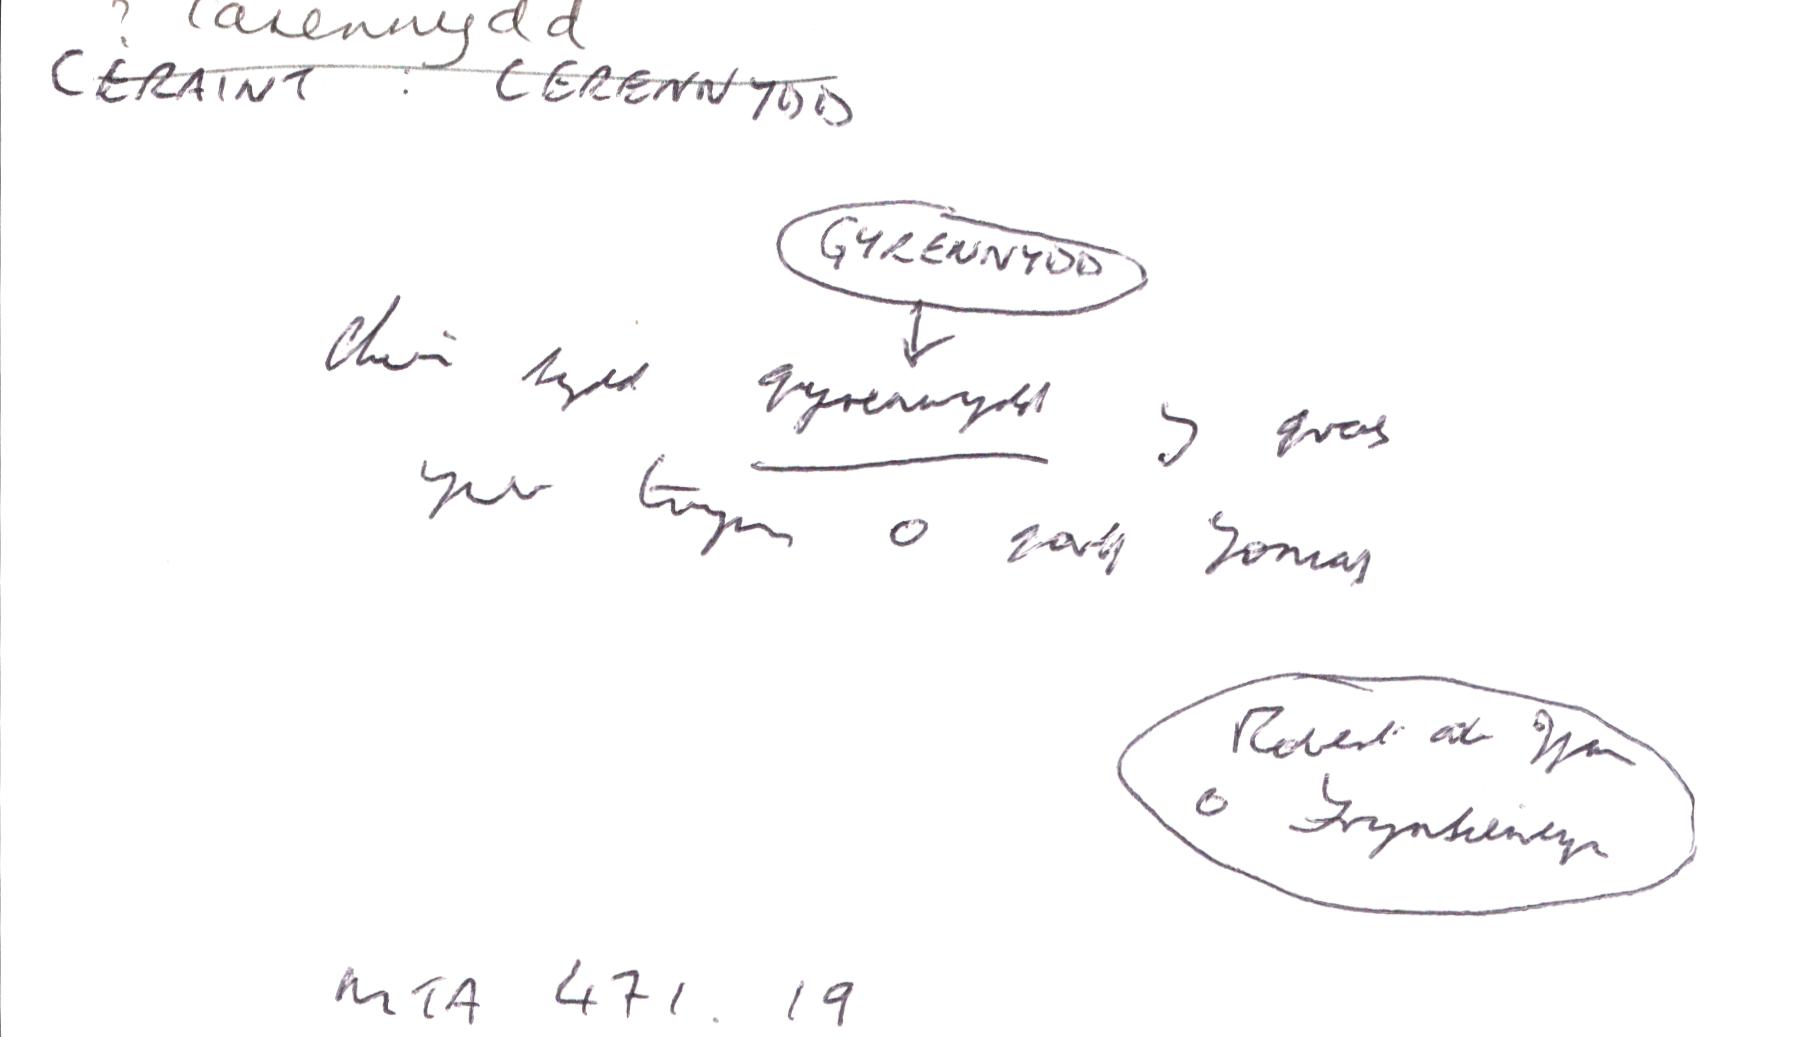 ? Carennydd
CERAINT : CERENNYDD
GYRENNYDD
chwi sydd gyrennydd y gras
o gorff Tomas
Robert ab Ifan
o Frynsiencyn
MTA 471. 19